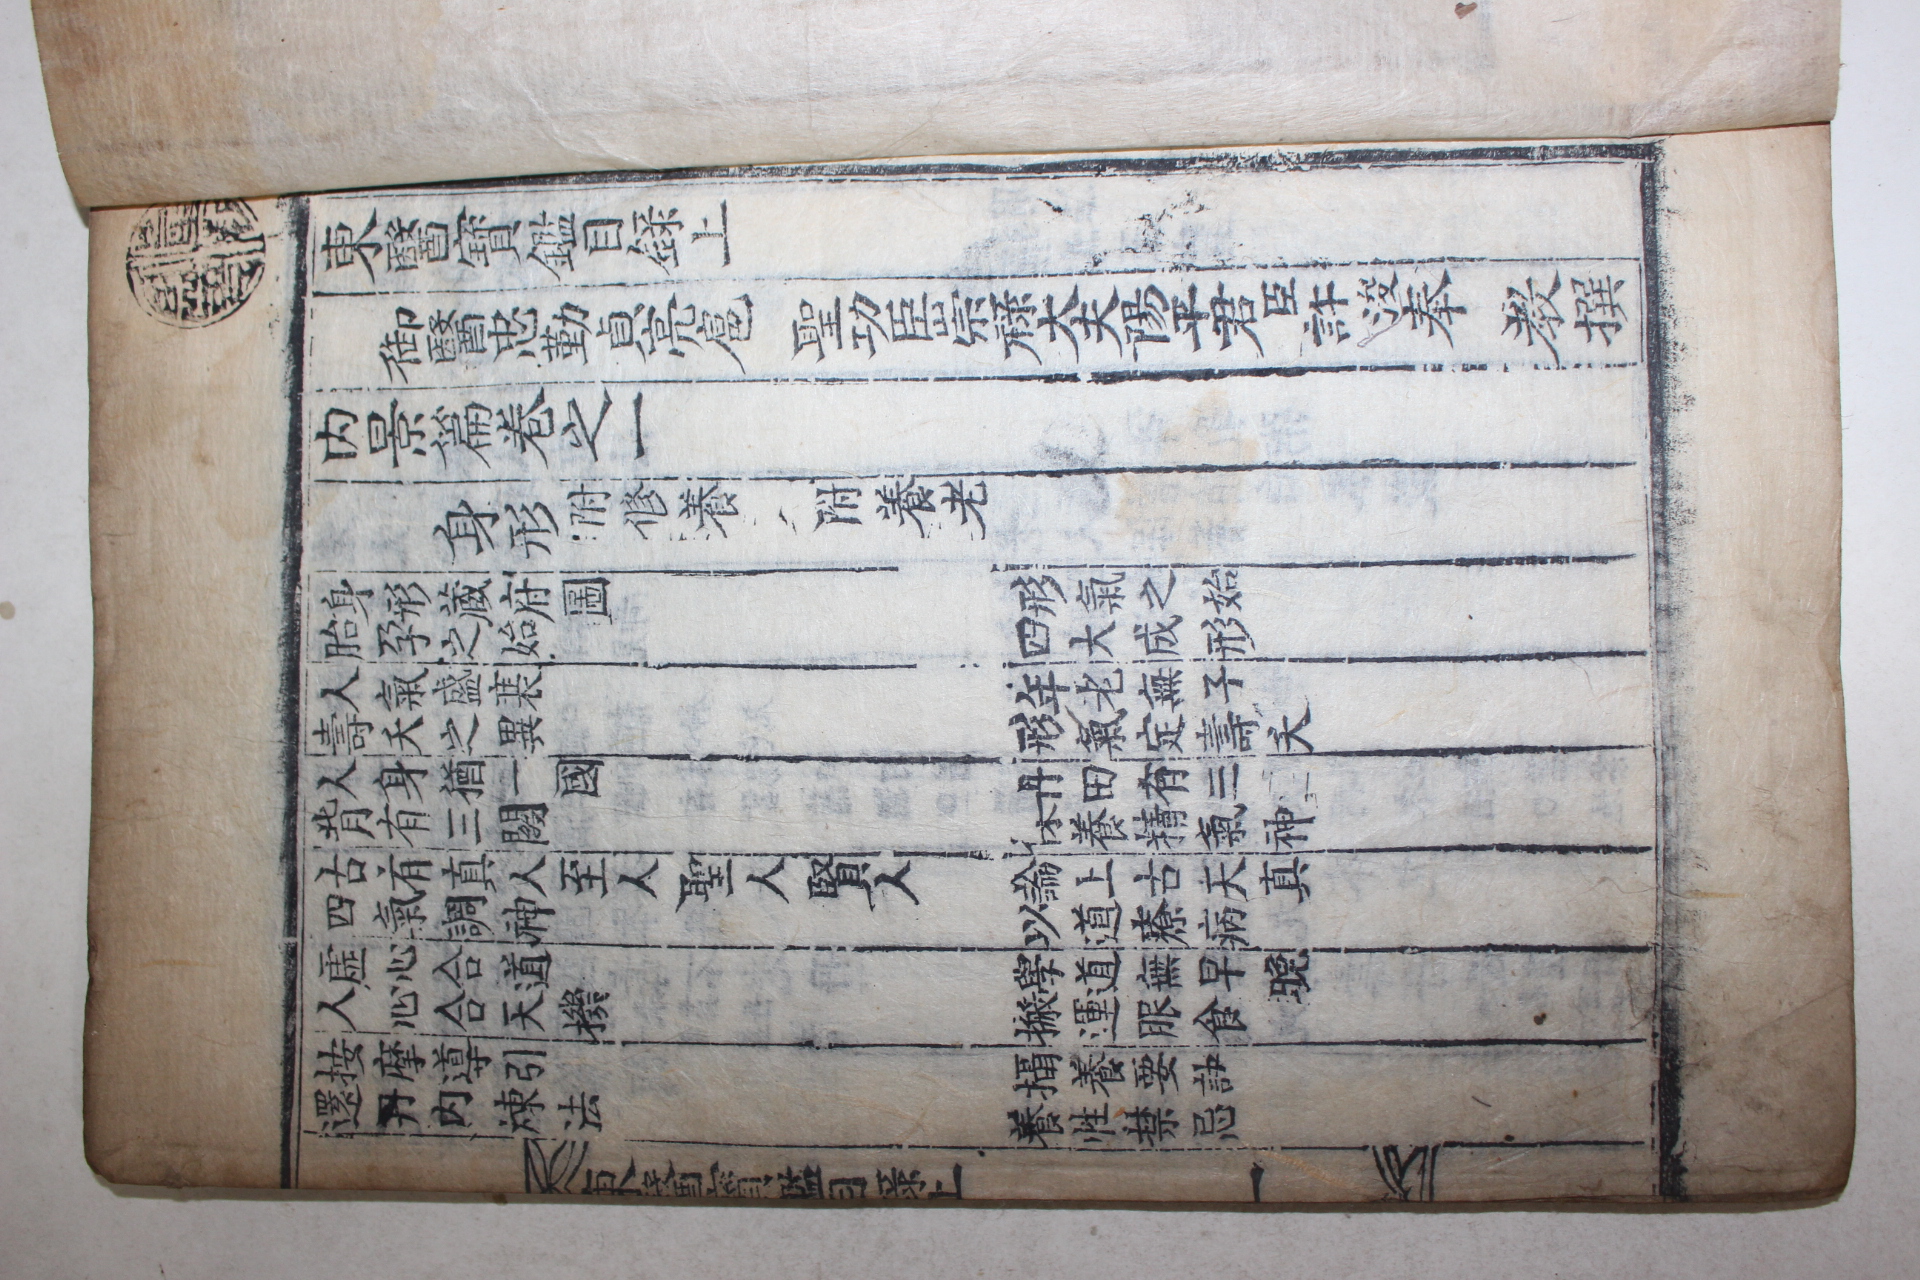 東醫寶鑑目錄上
御醫忠勤貞亮扈 聖功臣崇祿大夫陽平君臣許浚奉 教撰
內景篇卷之一
身形 附修養 附養老
身形藏府圖 形氣之始
胎孕之始 四大成形
人氣盛衰 年老無子
壽夭之異 形氣定壽夭
人身猶一國 丹田有三
背有三關 保養精氣神
古有真人至人聖人賢人 論上古天真
四氣調神 以道療病
虛心合道 學道無早晚
人心合天機 搬運服食
按摩導引 攝養要訣
還丹內煉法 養性禁忌
東醫寶鑑目錄上 一